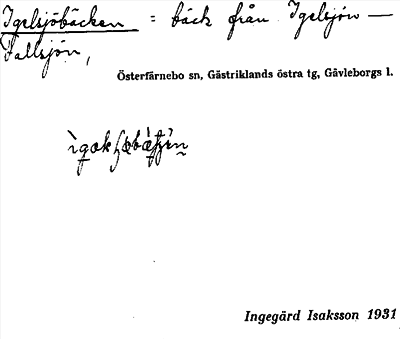 Igelsjöbäcken = bäck från Igelsjön —
Fallsjön,
Österfärnebo sn, Gästriklands östra tg, Gävleborgs l.
Ingegärd Isaksson 1931